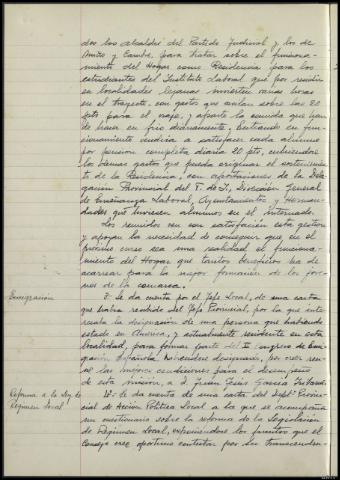 dos los alcaldes del Partido Judicial y los de
y Cambre, para tratar sobre el funciona-
miento del Hogar como Residencia para los
estudiantes del Instituto Laboral que por residir
en localidades lejanas invierten varias horas
en el trayecto, con gastos que oscilan sobre las 20
pts para el viaje, y aparte la comida que han
de hacer en frio diariamente. Entrando en fun-
cionamiento vendria a satisfacer cada alumno
por pension completa diaria 20 pts, cubriendose
los demas gastos que pueda originar el sostenimien-
to de la Residencia, con aportaciones de la Dele-
gación Provincial del F. de J., Dirección General
de Enseñanza Laboral, Ayuntamientos y Herman-
dades que tuviesen alumnos en el internado.
Los reunidos ven con satisfacción esta gestion
y apoyan la necesidad de conseguir que en el
próximo curso sea una realidad el funciona-
miento del Hogar que tantos beneficios ha de
acarrear para la mejor formacion de los jove-
nes de la comarca.
Emigración
9º Se da cuenta por el Jefe Local, de una carta
que habia recibido del Jefe Provincial, por la que inte-
resaba la designación de una persona que habiendo
estado en America, y actualmente residente en esta
localidad, para formar parte del II Congreso de Emi-
gración Española, habiendose designado, por creer reu-
ne las mejores condiciones para el desempeño
de esta misión, a D. Juan Jesús Garcia
Reforma a la Ley de
Regimen Local
10º Se da cuenta de una carta del Delº Provin-
cial de Acción Politica Local a la que se acompaña
un cuestionario sobre la reforma de la Legislación
de Regimen Local, exponiendose los puntos que el
Consejo cree oportuno contestar por su trascenden-